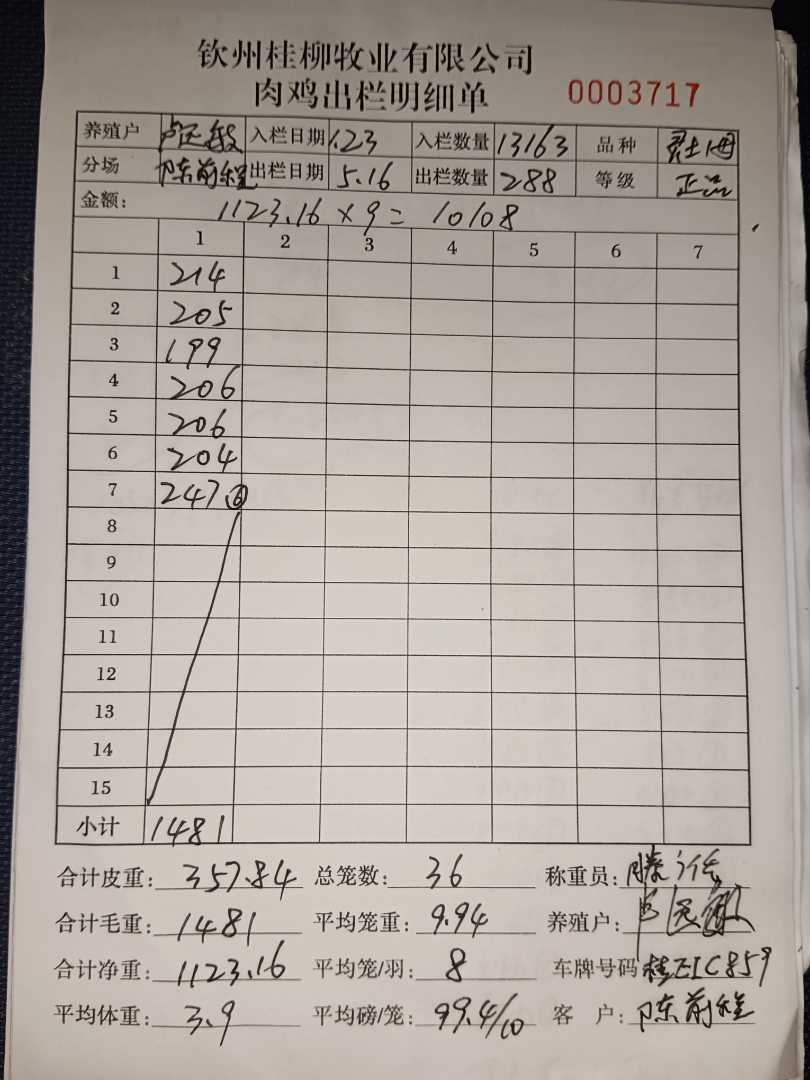 钦州桂柳牧业有限公司
肉鸡出栏明细单 0003717
养殖户 卢廷敏 入栏日期 1.23 入栏数量 13163 品种 土
分场 陈前程 出栏日期 5.16 出栏数量 288 等级 正品
金额: 1123.16 × 9 = 10108
1 2 3 4 5 6 7
1 214
2 205
3 199
4 206
5 206
6 204
7 247 ⑥
8
9
10
11
12
13
14
15
小计 1481
合计皮重: 357.84 总笼数: 36 称重员: 滕
合计毛重: 1481 平均笼重: 9.94 养殖户: 卢廷敏
合计净重: 1123.16 平均笼/羽: 8 车牌号码 桂
平均体重: 3.9 平均磅/笼: 99.4/10 客 户: 陈前程